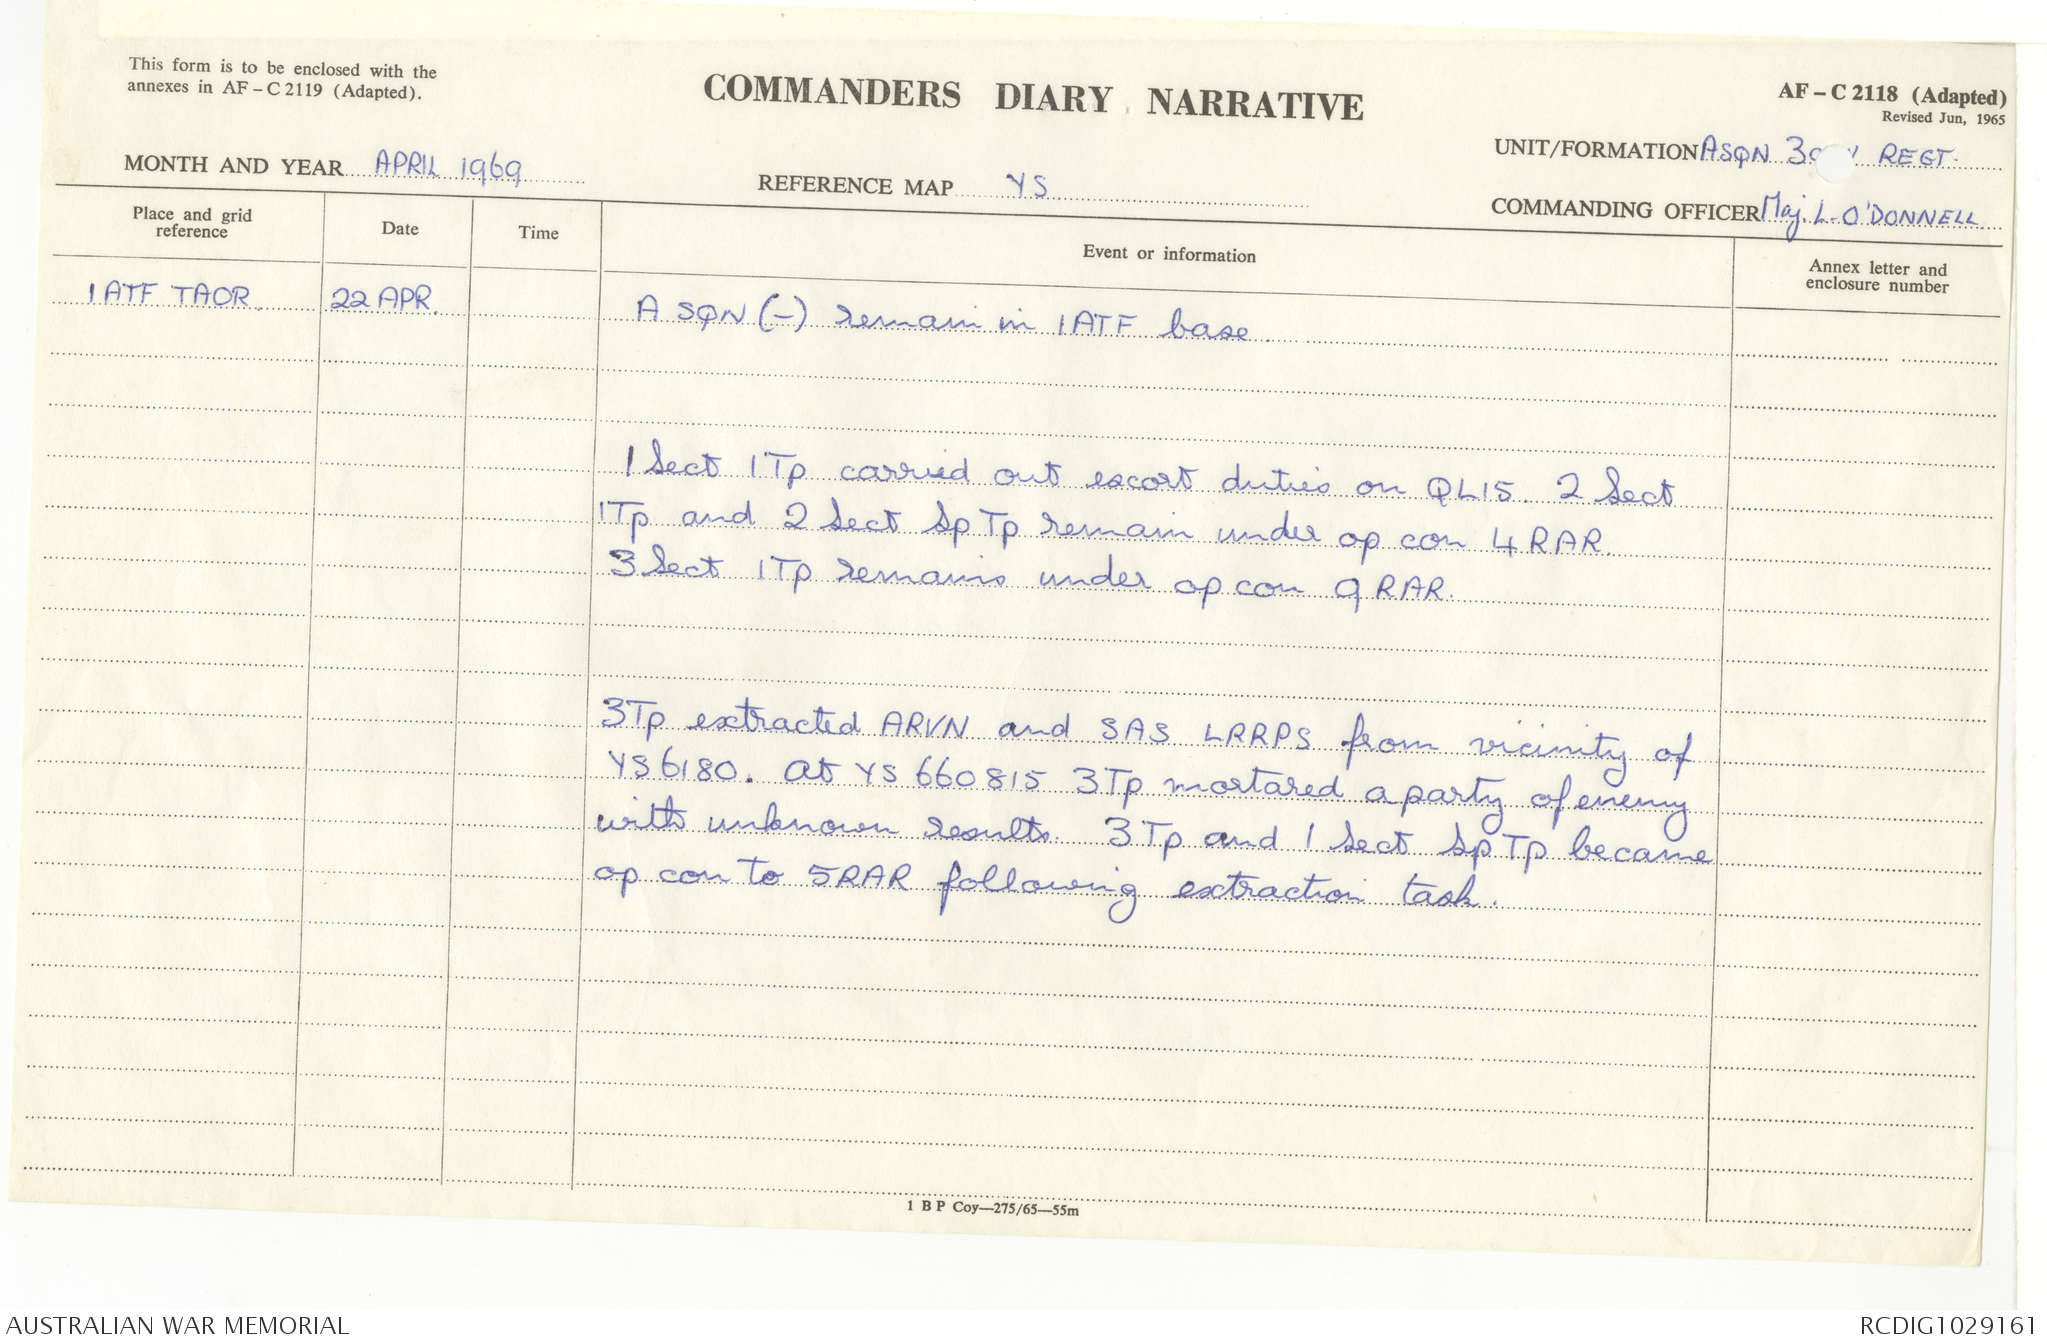 This form is to be enclosed with the
annexes in AF – C 2119 (Adapted).
COMMANDERS DIARY NARRATIVE
AF – C 2118 (Adapted)
Revised Jun, 1965
MONTH AND YEAR APRIL 1969
REFERENCE MAP YS
UNIT/FORMATION A SQN REGT.
COMMANDING OFFICER Maj. L. O'DONNELL
Place and grid
reference
Date
Time
Event or information
Annex letter and
enclosure number
1 ATF TAOR. 22 APR. A SQN (-) remain in 1 ATF base.
1 Sect 1 Tp carried out escort duties on QL15. 2 Sect
1Tp and 2 Sect Sp Tp remain under op con 4 RAR.
3 Sect 1Tp remains under op con 9 RAR.
3Tp extracted ARVN and SAS LRRPS from vicinity of
YS 6180. At YS 660815 3Tp mortared a party of enemy
with unknown results. 3Tp and 1 Sect Sp Tp became
op con to 5RAR following extraction task.
1 B P Coy—275/65—55m
AUSTRALIAN WAR MEMORIAL
RCDIG1029161